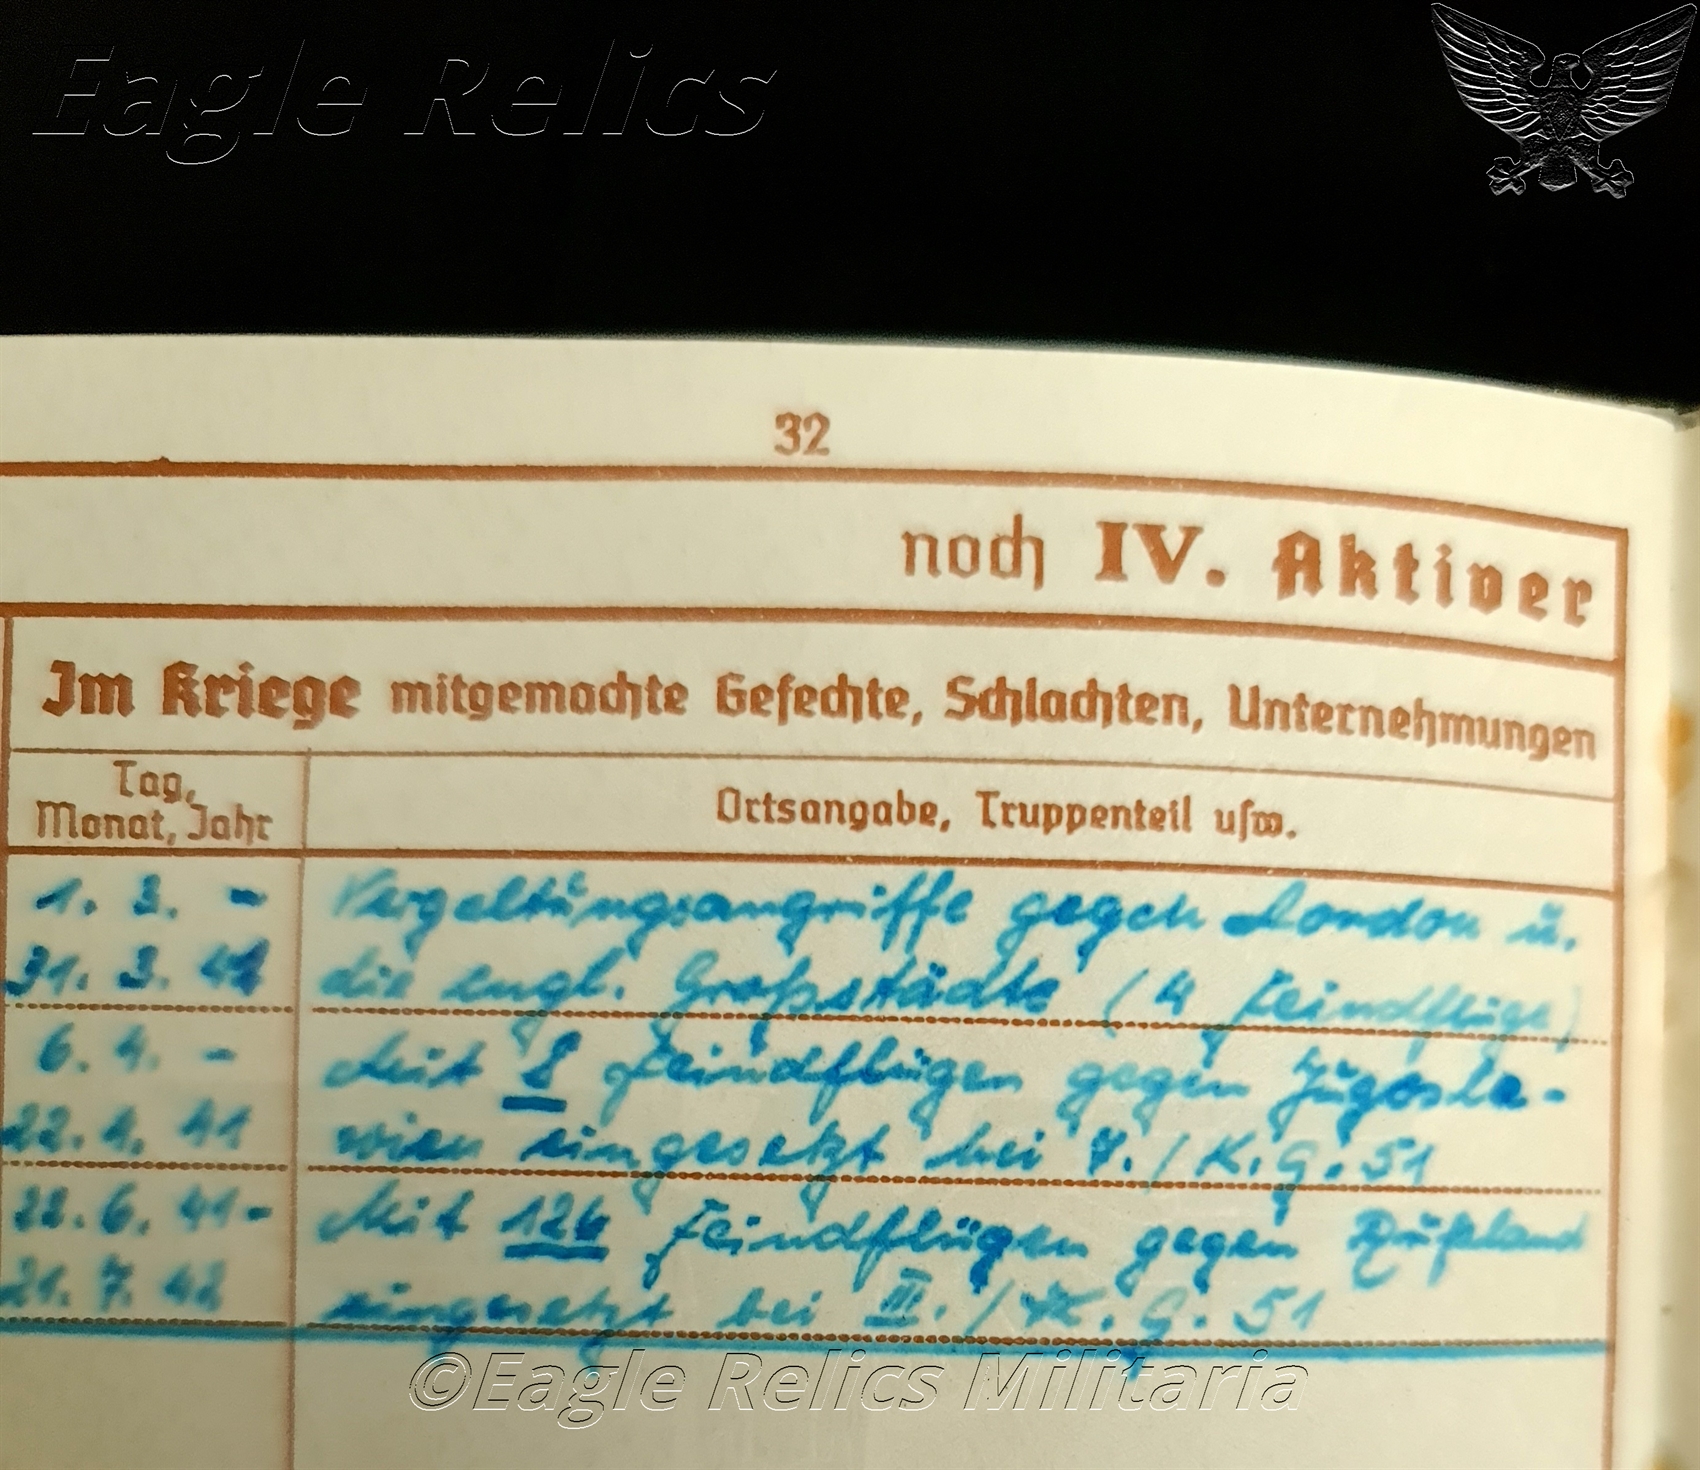 Eagle Relics
32
noch IV. Aktiver
Im Kriege mitgemachte Gefechte, Schlachten, Unternehmungen
Tag,
Monat, Jahr
Ortsangabe, Truppenteil usw.
1. 3. - Vergeltungsangriffe gegen London u.
31. 3. 41 die engl. Großstädte (4 Feindflüge)
6. 4. - Mit 8 Feindflügen gegen Jugosla-
22. 4. 41 wien eingesetzt bei 7./K.G. 51
22. 6. 41- Mit 126 Feindflügen gegen Rußland
21. 7. 42 eingesetzt bei III./K.G. 51
©Eagle Relics Militaria